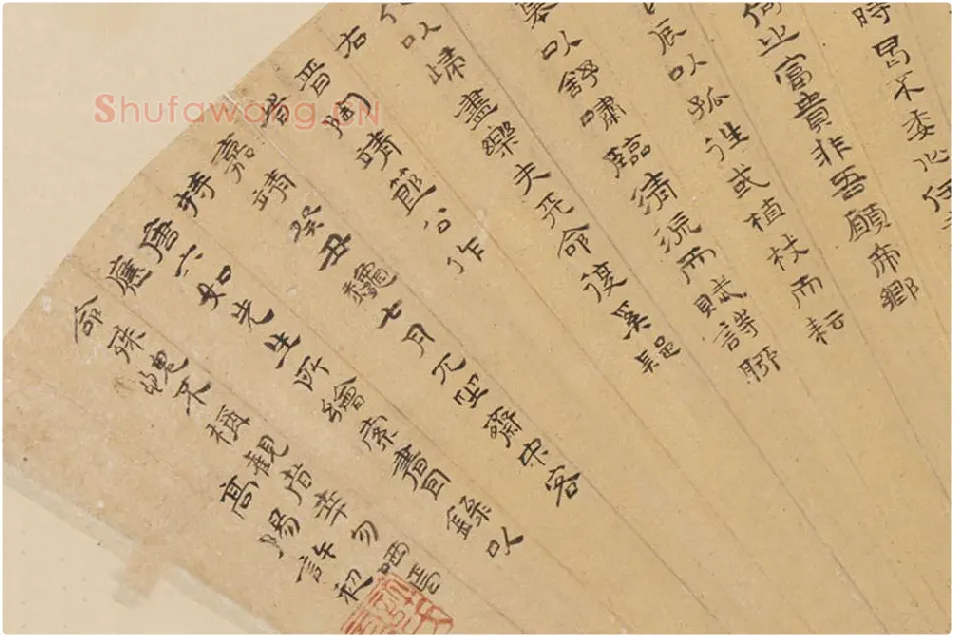 時曷不委心任
何之富貴非吾願帝鄉
良辰以孤往或植杖而耘
皋以舒嘯臨清流而賦詩聊
化以歸盡樂夫天命復奚疑
右晉陶靖節公作
時嘉靖癸丑龝七月兀坐齋中客
持唐六如先生所繪索書因錄以
應命殊愧不稱觀者幸勿哂焉
高陽許初
Shufawang.CN